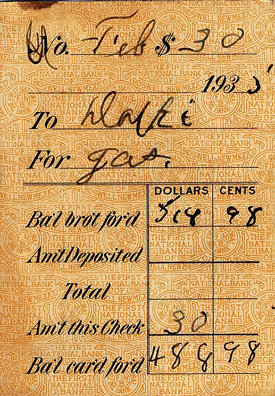 No. Feb $ 30
193
To
For gas.
DOLLARS CENTS
Bal brot for'd 518 98
Am't Deposited
Total
Am't this Check 30
Bal card ford 488 98